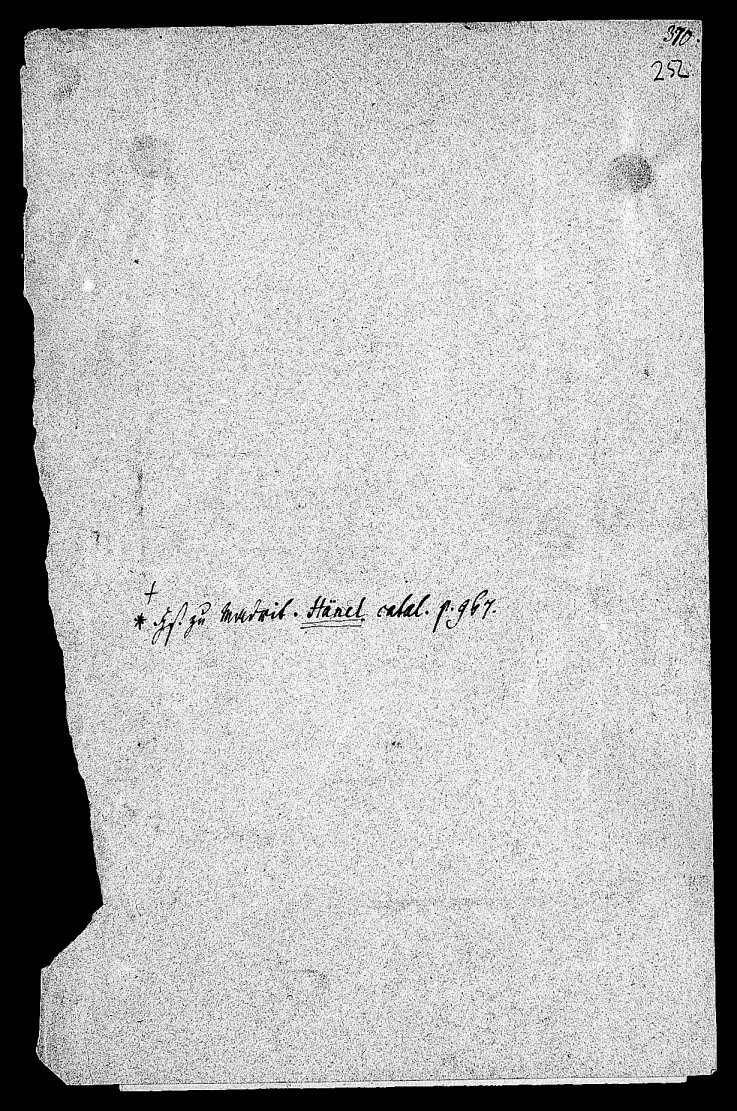 370.
252
+
* Hs. zu Madrit. Hänel catal. p. 967.